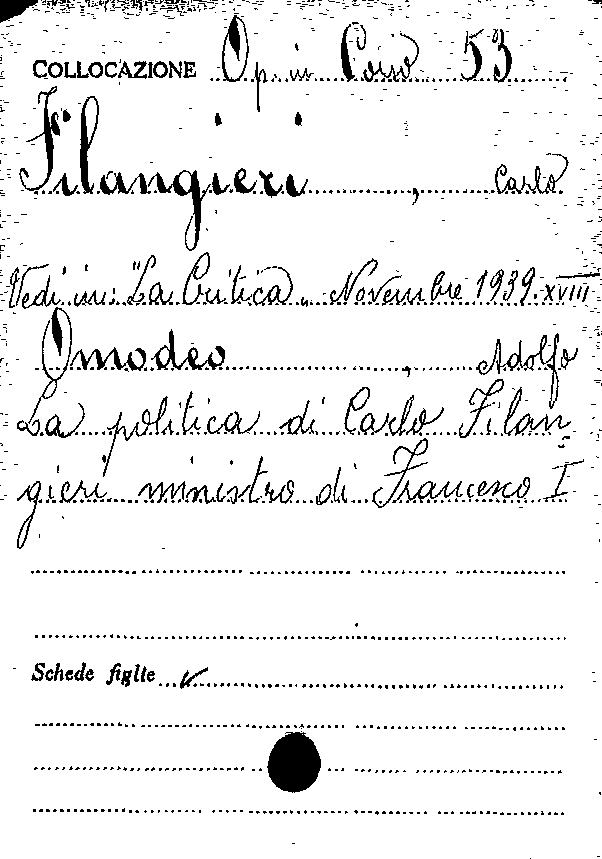 COLLOCAZIONE Op. in Corso 53
Filangieri, Carlo
Vedi in: "La Critica„ Novembre 1939. XVIII
Omodeo, Adolfo
La politica di Carlo Filan=
gieri ministro di Francesco I
Schede figlie